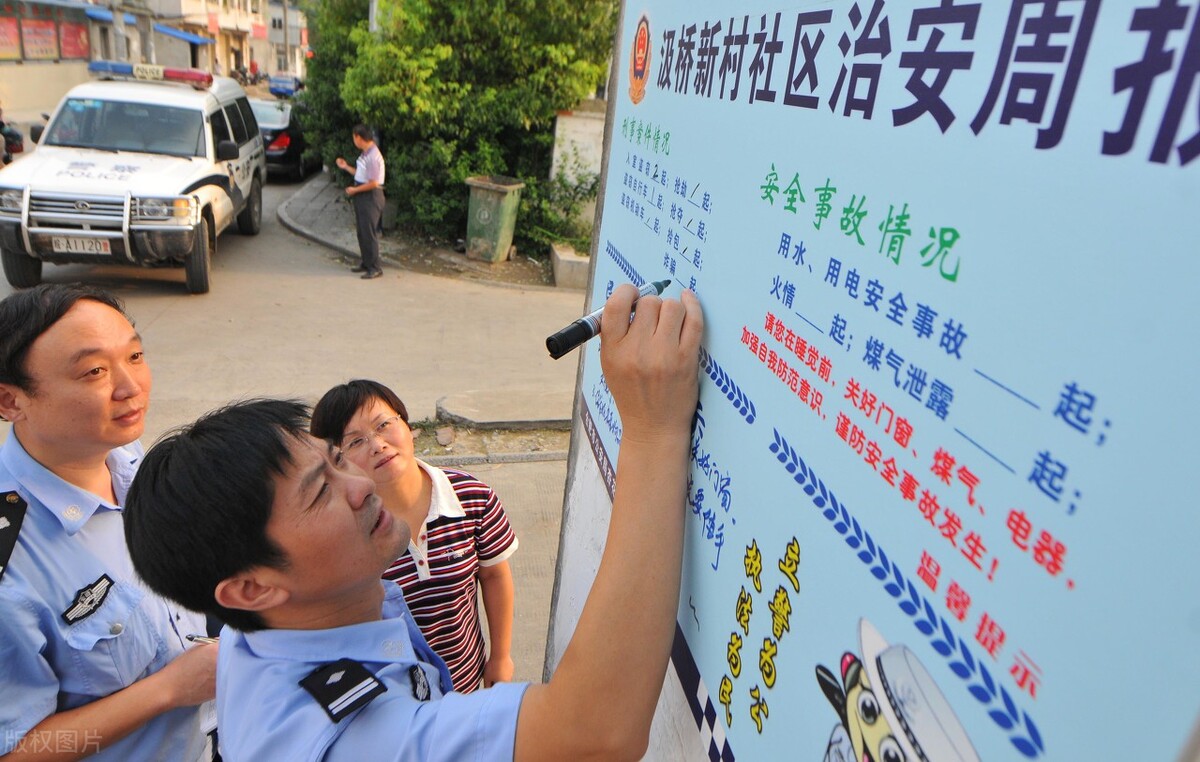 汲桥新村社区治安周报
刑事案件情况
入室盗窃2起; 抢劫/起;
盗窃自行车1起; 抢夺/起;
盗窃机动车/起; 抢包/起;
诈骗 起
安全事故情况
用水、用电安全事故____起;
火情__起; 煤气泄露____起;
请您在睡觉前, 关好门窗、煤气、电器,
加强自我防范意识, 谨防安全事故发生!
温馨提示
门窗.
立警为公
执法为民
警察
POLICE
POLICE
A1120
版权图片